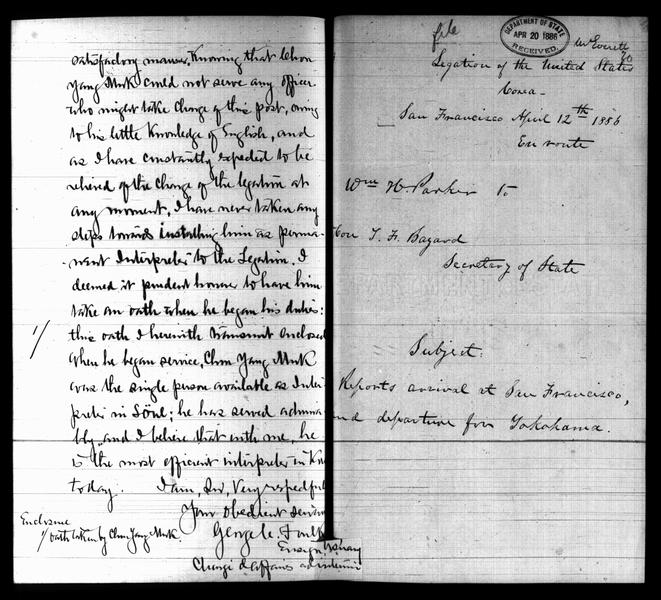 satisfactory manner. Knowing that Chon
Yang Muk could not serve any officer
who might take charge of this post, owing
to his little knowledge of English, and
as I have constantly expected to be
relieved of the charge of the legation at
any moment, I have never taken any
steps towards installing him as perma-
nent Interpreter to the Legation. I
deemed it prudent however to have him
take an oath when he began his duties:
1/ this oath I herewith transmit enclosed
When he began service, Chon Yang Muk
was the single person available as Inter-
preter in Söul; he has served admira-
bly, and I believe that with me, he
is the most efficient interpreter in
today. I am, Sir, Very respectful
Your obedient servant
George C. Foulk
Ensign
Chargé d'affaires ad interim
Enclosure
1/ Oath taken by Chon Yang Muk.
file
DEPARTMENT OF STATE
APR 20 1886
RECEIVED
Mr Everett
Legation of the United States
Corea.
San Francisco April 12th 1886
En route
Wm H. Parker to
Hon T. F. Bayard
Secretary of State
Subject:
Reports arrival at San Francisco,
and departure for Yokohama.